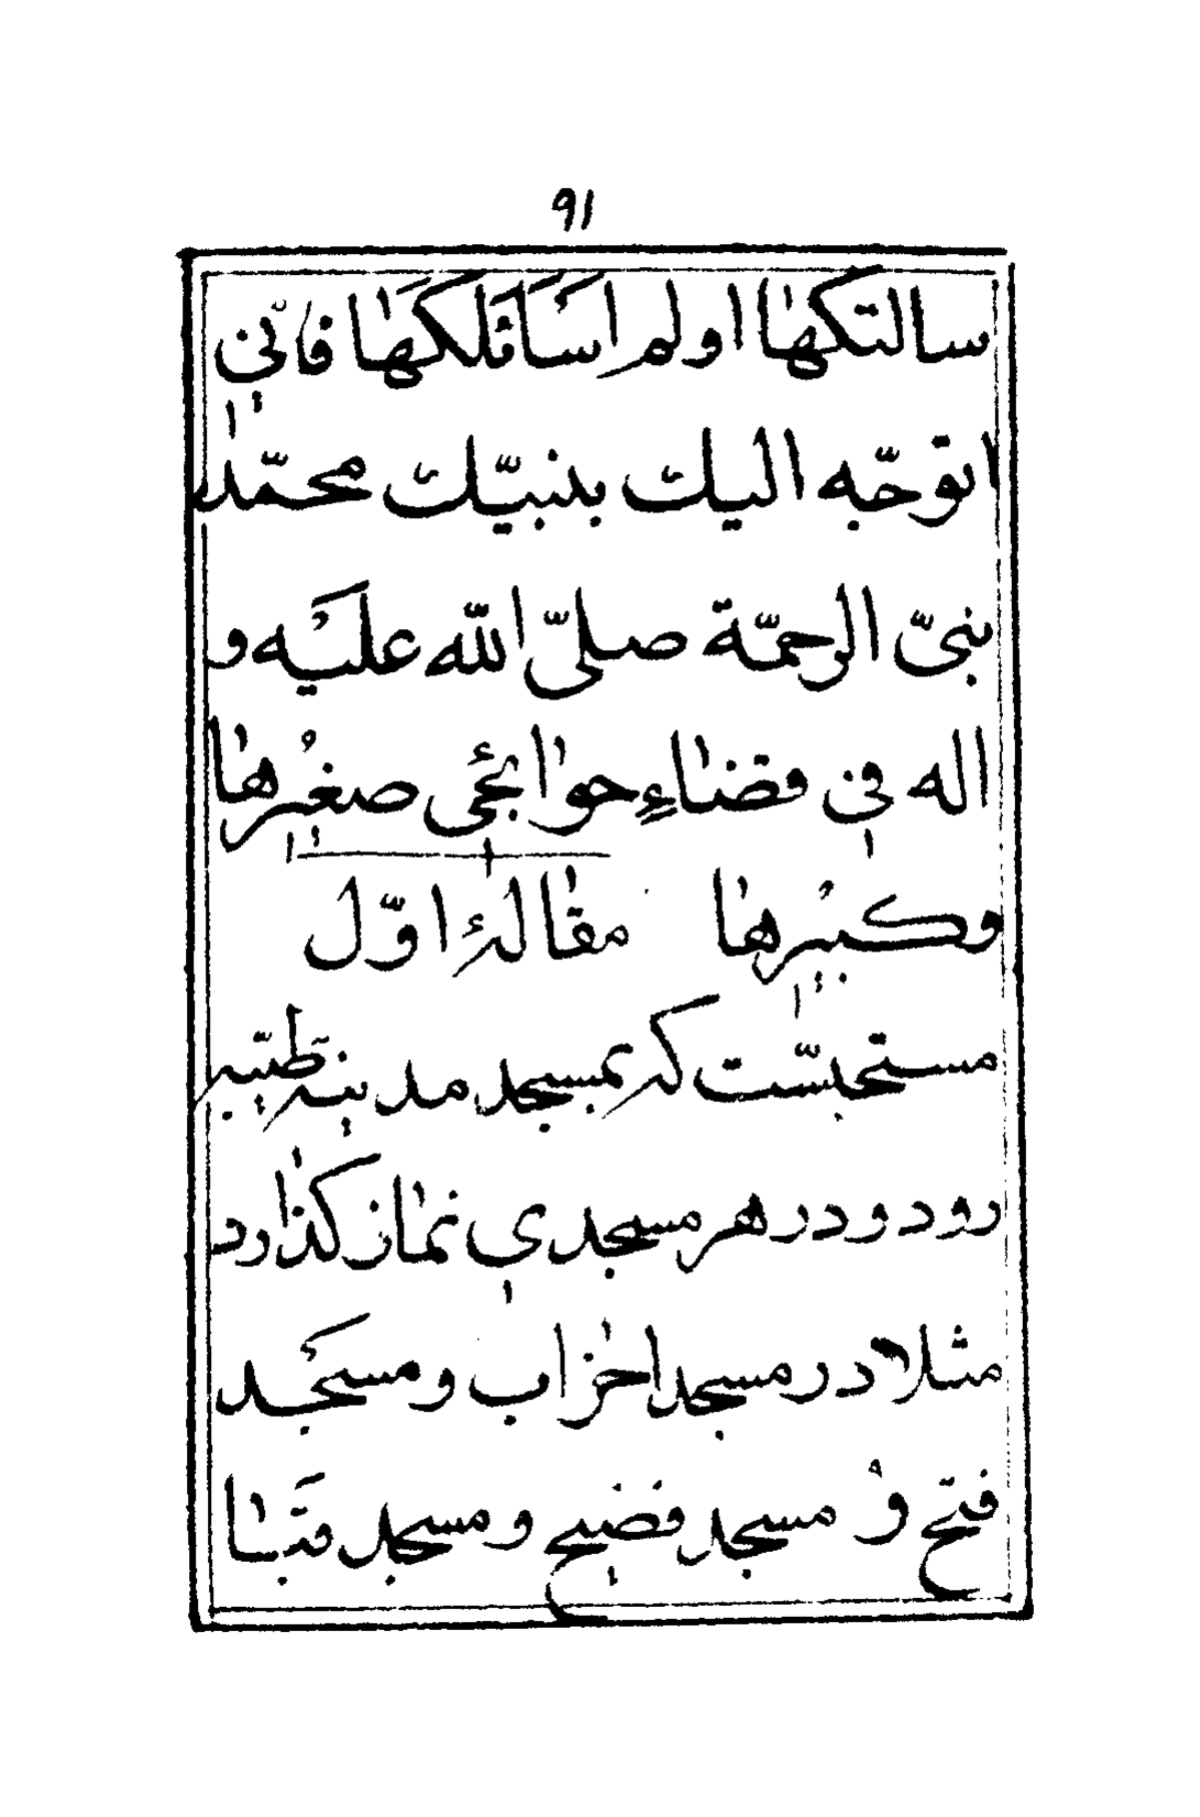 ۹۱
سالتکها او لم اسَاَئلکَها فانّی
اتوجّه الیك بنبیّك محمّد
نبیّ الرحمّة صلّی اللّه علیْه و
اله فی قضاءِ حوائجی صغیْرها
وکبیْرها مقالهٔ اوّل
مستحبسّت که بمسجد مدینه طیّبه
رود و در هر مسجدی نماز کذارد
مثلا در مسجد احزاب و مسجْد
فتح و مسجد فضیح و مسجد قبا